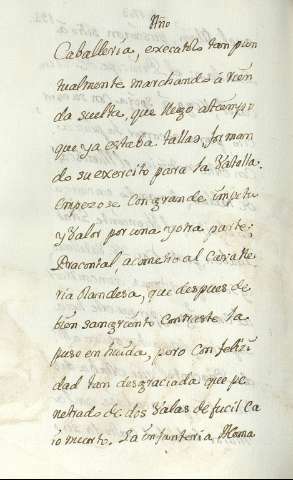 Año
Caballeria, executolo tan pun
tualmente marchando á rien
da suelta, que llego al tiempo
que ya estaba tallas, forman
do su exercito para la Vatalla.
empezose con grande impetu
y Valor por una y otra parte;
Dracontal, acometio al Cavalle
ria olandesa, que despues de
bien sangriento Contraste la
puso en huida, pero con felizi
dad tam desgraciada que pe
netrado de dos Valas de fucil ca
io muerto. La infanteria